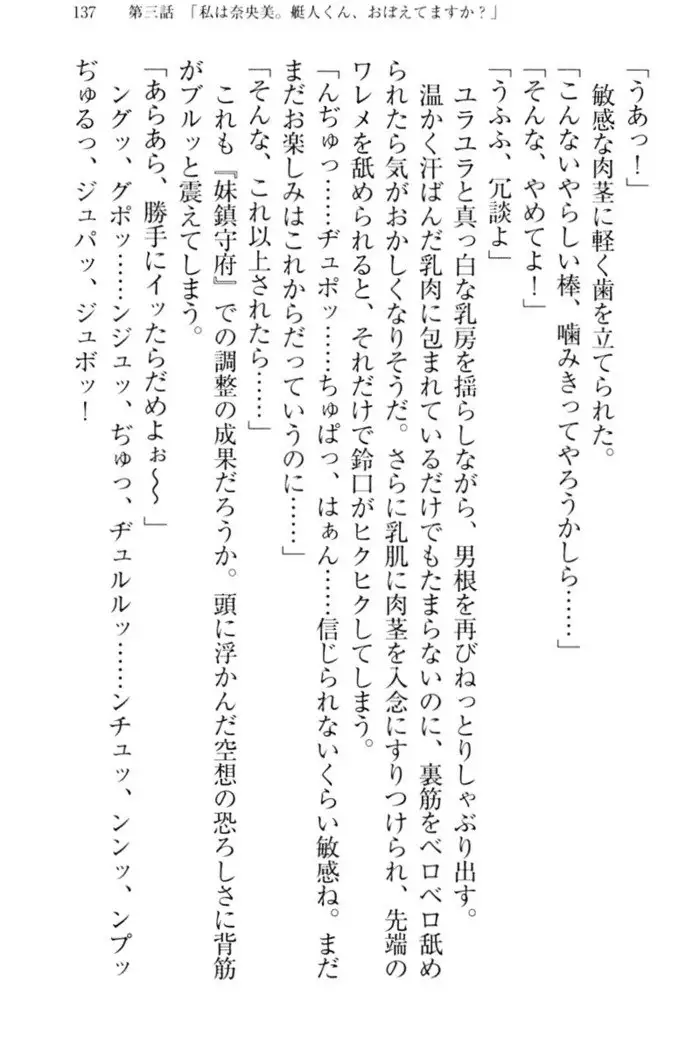 137　第三話　「私は奈央美。艇人くん、おぼえてますか？」
「うあっ！」
敏感な肉茎に軽く歯を立てられた。
「こんないやらしい棒、噛みきってやろうかしら……」
「そんな、やめてよ！」
「うふふ、冗談よ」
ユラユラと真っ白な乳房を揺らしながら、男根を再びねっとりしゃぶり出す。
温かく汗ばんだ乳肉に包まれているだけでもたまらないのに、裏筋をベロベロ舐め
られたら気がおかしくなりそうだ。さらに乳肌に肉茎を入念にすりつけられ、先端の
ワレメを舐められると、それだけで鈴口がヒクヒクしてしまう。
「んぢゅっ……ヂュポッ……ちゅぱっ、はぁん……信じられないくらい敏感ね。まだ
まだお楽しみはこれからだっていうのに……」
「そんな、これ以上されたら……」
これも『妹鎮守府』での調整の成果だろうか。頭に浮かんだ空想の恐ろしさに背筋
がブルッと震えてしまう。
「あらあら、勝手にイッたらだめよぉ〜〜」
ングッ、グポッ……ンジュッ、ぢゅっ、ヂュルルッ……ンチュッ、ンンッ、ンプッ
ぢゅるっ、ジュパッ、ジュボッ！